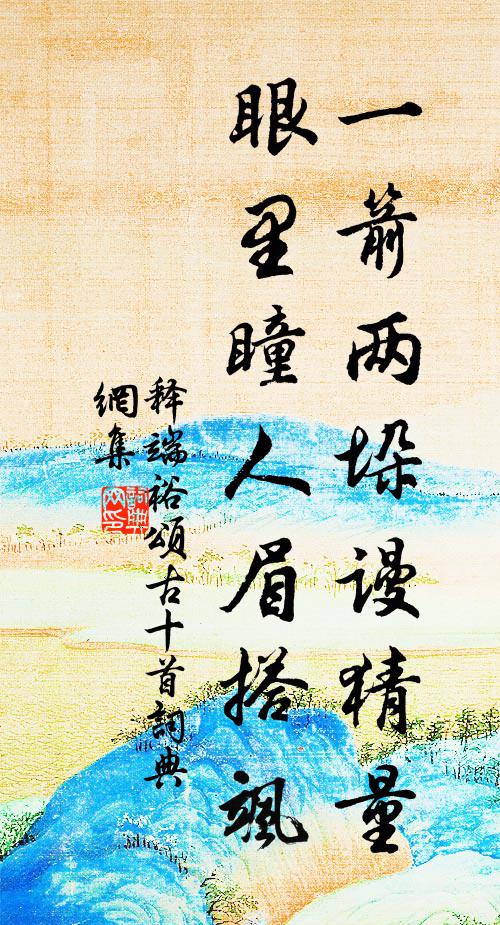 一箭两垛谩猜量
眼里瞳人眉搭飒
释端裕颂古十首詞典
網集
詞典
网印